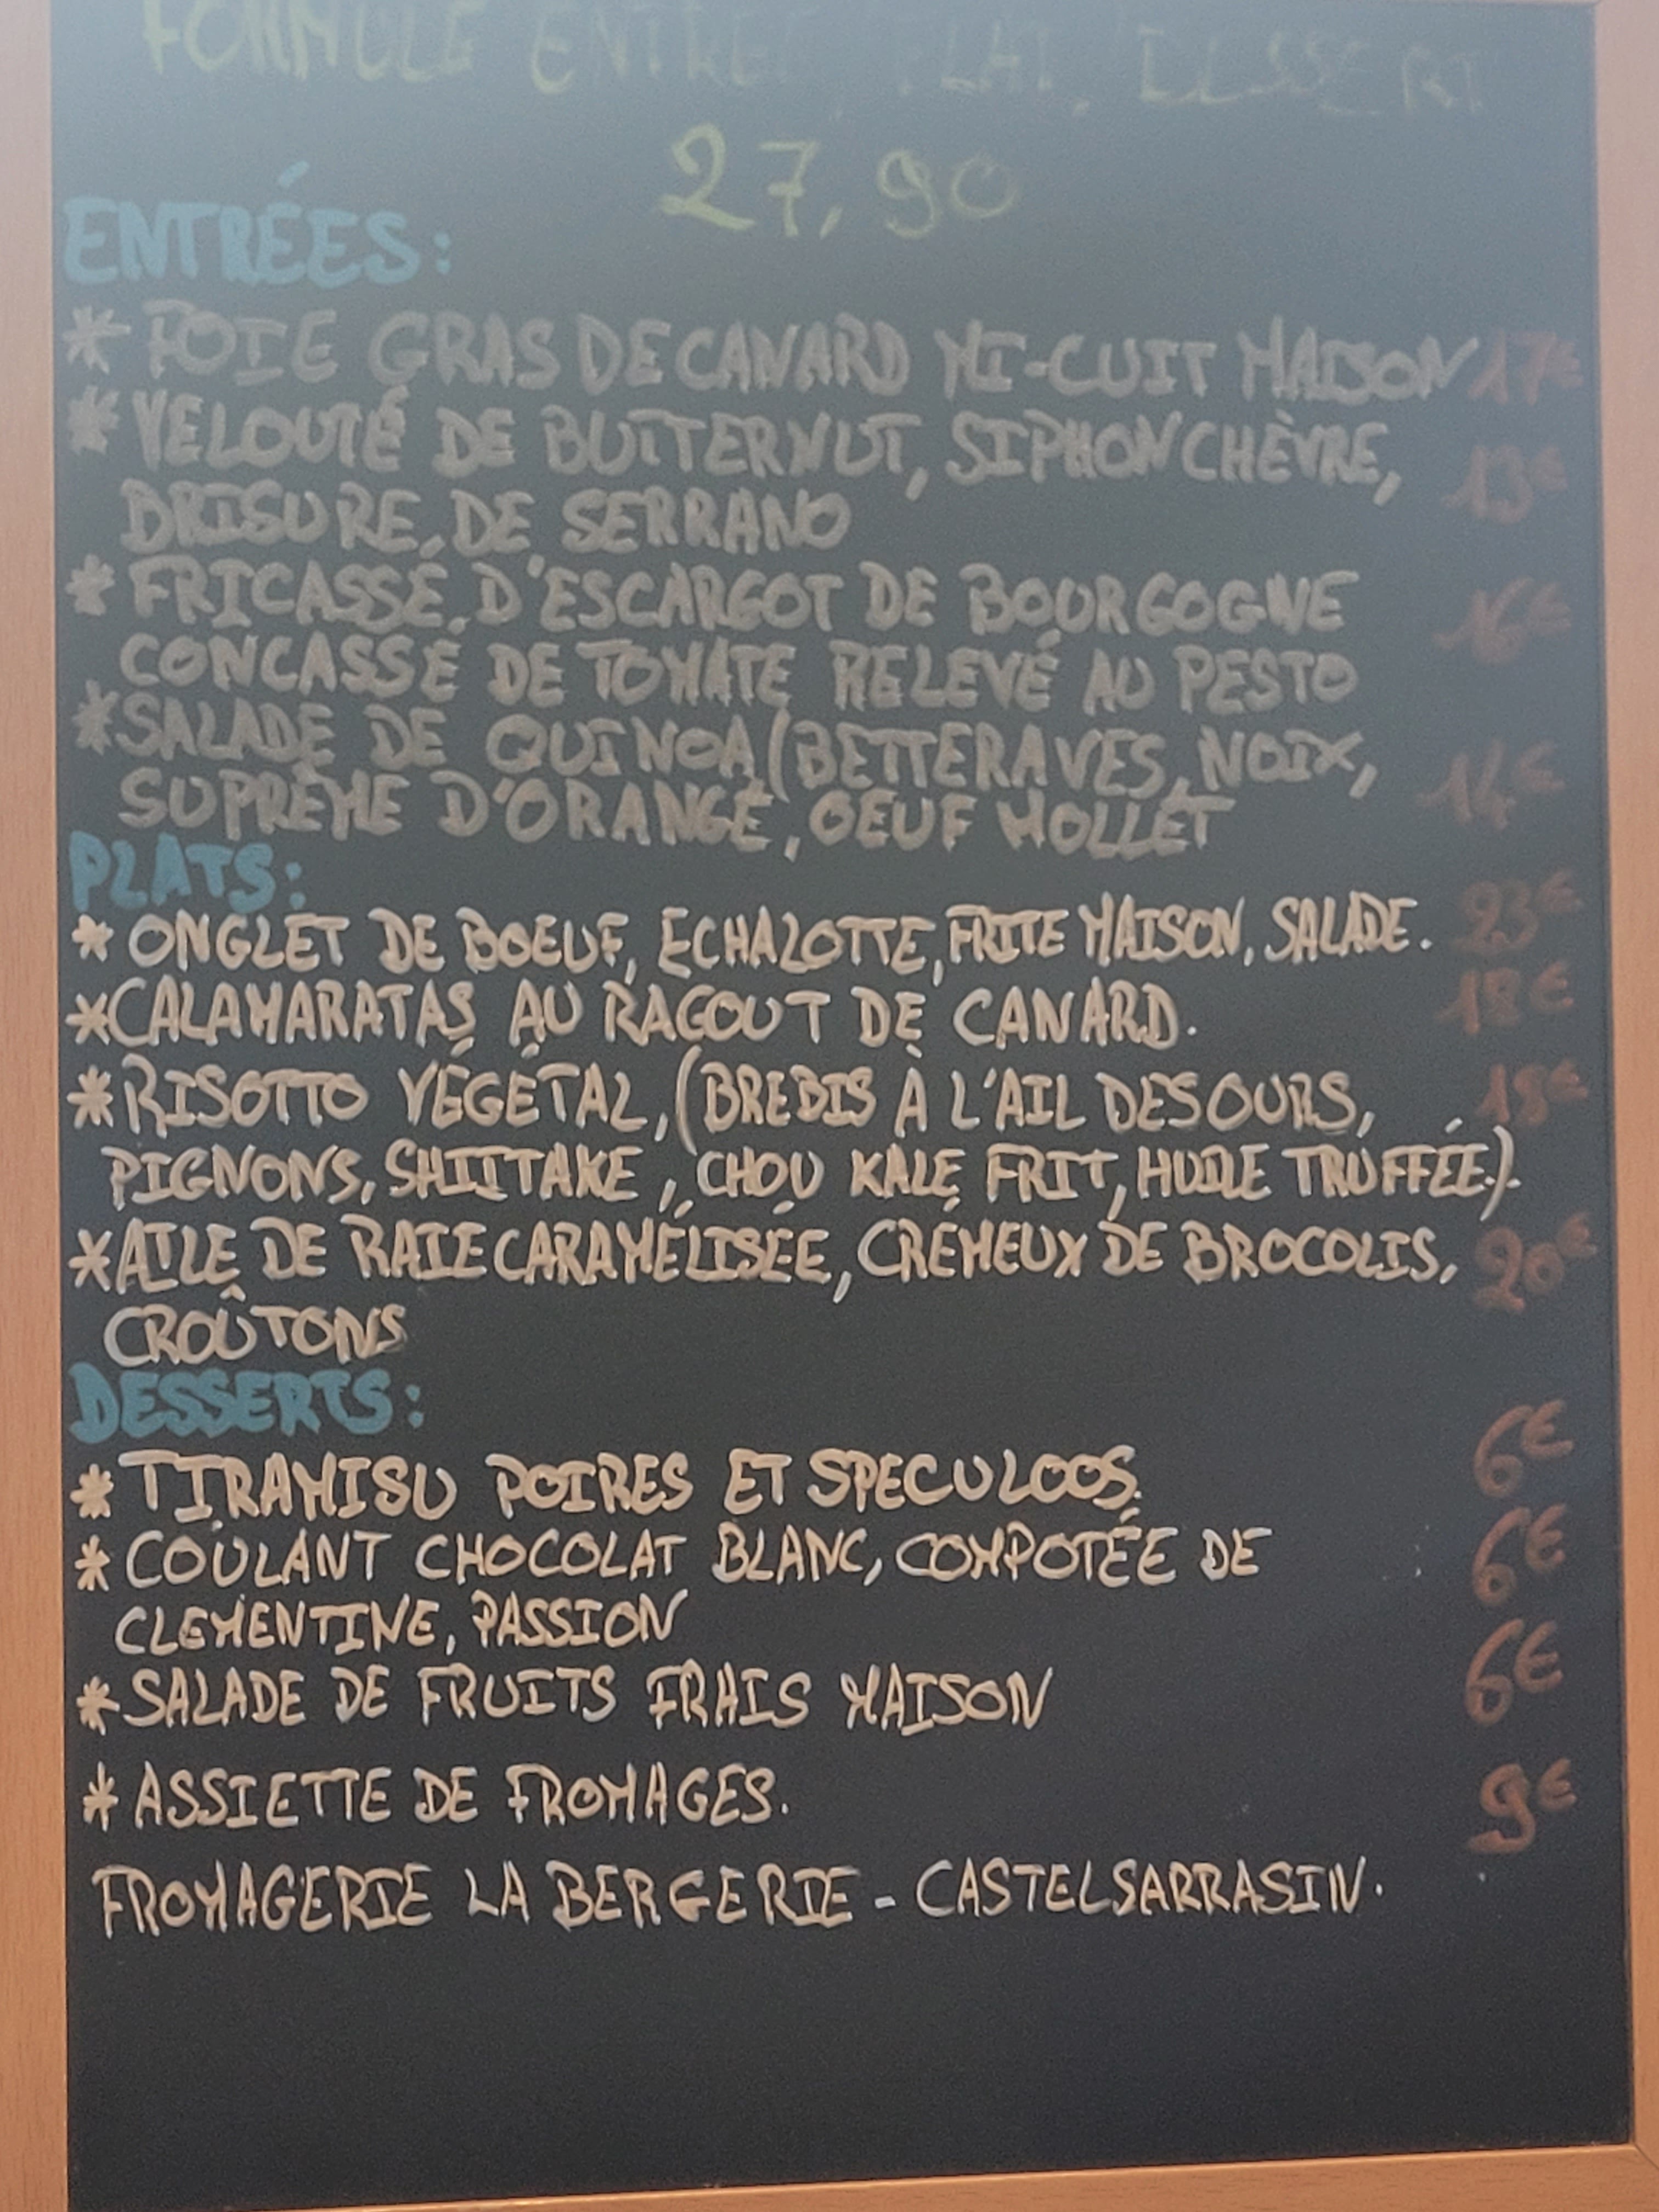 FORMULE ENTRÉE, PLAT, DESSERT
27,90
ENTRÉES:
* FOIE GRAS DE CANARD MI-CUIT MAISON 17€
* VELOUTÉ DE BUTTERNUT, SIPHON CHÈVRE, 13€
BRISURE DE SERRANO
* FRICASSÉ D'ESCARGOT DE BOURGOGNE 16€
CONCASSÉ DE TOMATE RELEVÉ AU PESTO
* SALADE DE QUINOA (BETTERAVES, NOIX, 14€
SUPRÊME D'ORANGE, OEUF MOLLET
PLATS:
* ONGLET DE BOEUF, ECHALOTTE, FRITE MAISON, SALADE. 23€
* CALAMARATAS AU RAGOUT DE CANARD. 18€
* RISOTTO VÉGÉTAL, (BREBIS À L'AIL DES OURS,
PIGNONS, SHIITAKE, CHOU KALE FRIT, HUILE TRUFFÉE).
* AILE DE RAIE CARAMÉLISÉE, CRÉMEUX DE BROCOLIS, 20€
CROÛTONS
DESSERTS:
* TIRAMISU POIRES ET SPECULOOS. 6€
* COULANT CHOCOLAT BLANC, COMPOTÉE DE 6€
CLEMENTINE, PASSION
* SALADE DE FRUITS FRAIS MAISON 6€
* ASSIETTE DE FROMAGES. 9€
FROMAGERIE LA BERGERIE - CASTELSARRASIN.